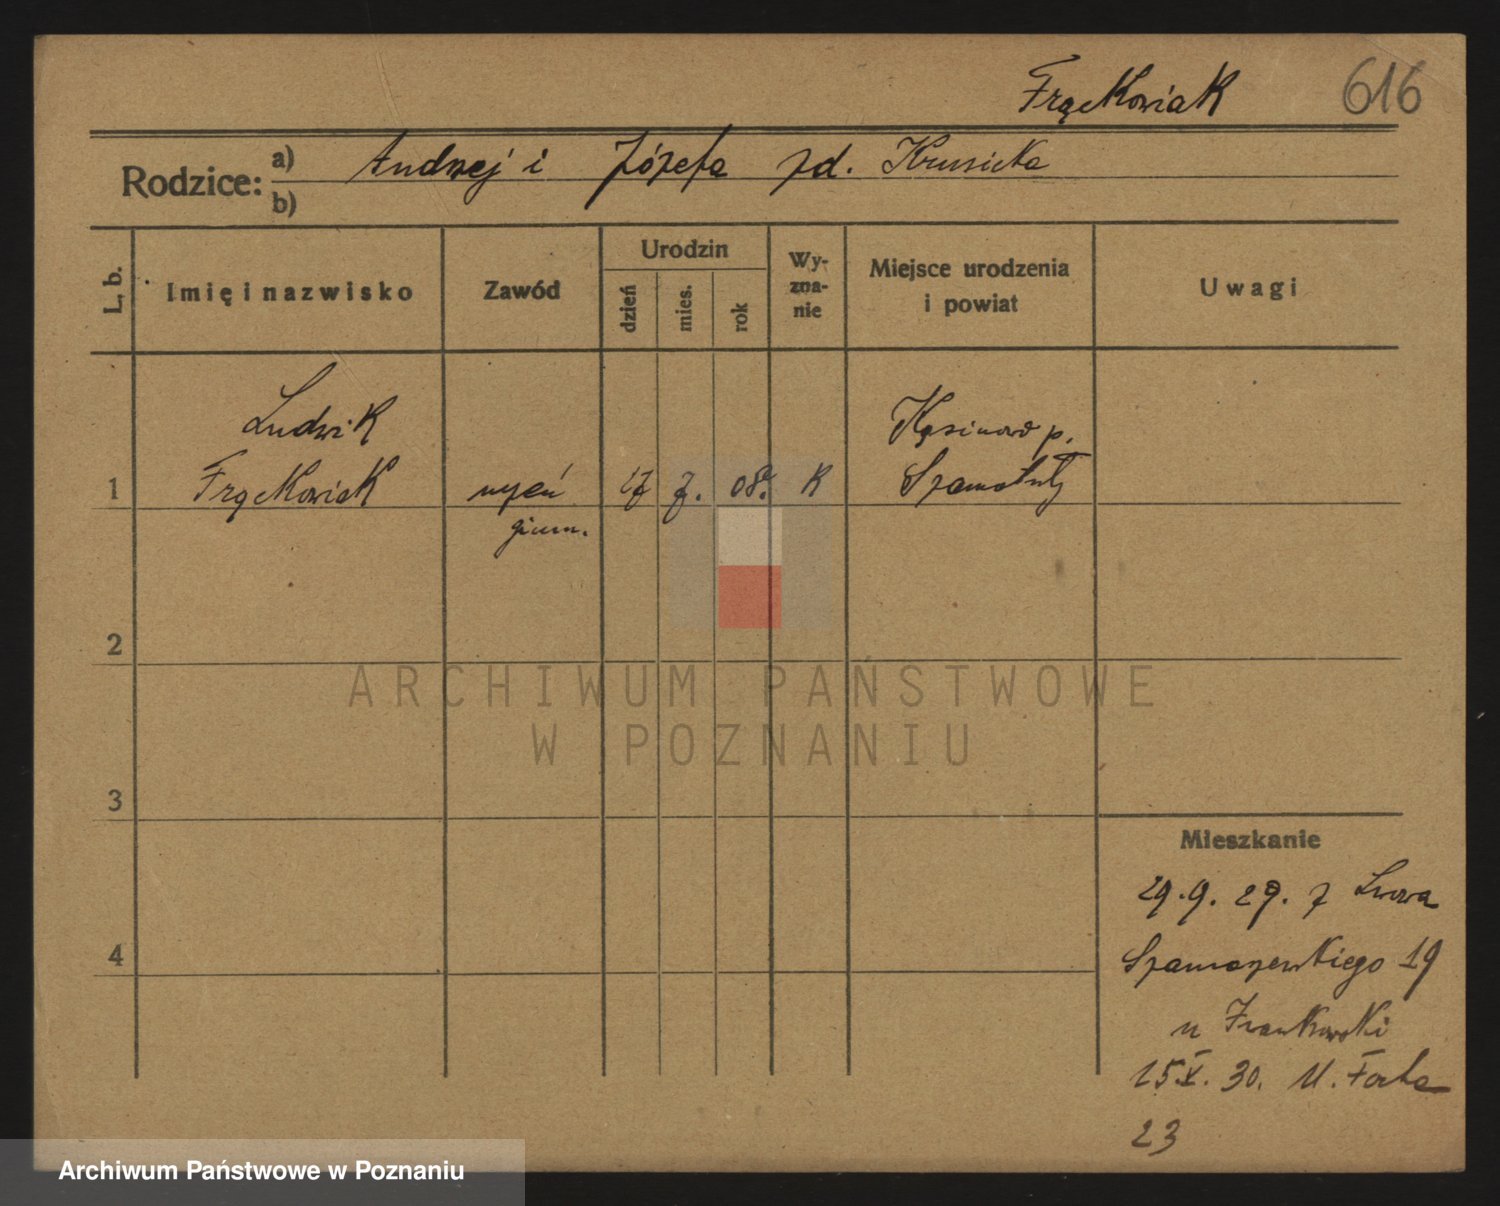 Frąckowiak 616
Rodzice: a) Andrzej i Józefa zd.
b)
L. b.
Imię i nazwisko
Zawód
Urodzin
dzień
mies.
rok
Wy-
zna-
nie
Miejsce urodzenia
i powiat
Uwagi
Ludwik
Kąsinowo p.
1 Frąckowiak uczeń 17 7. 08. K Szamotuły
gimn.
2
3
4
ARCHIWUM PAŃSTWOWE
W POZNANIU
Mieszkanie
29.9.29. z Lwowa
Szamarzewskiego 19
u
15 X. 30. M. Focha
23
Archiwum Państwowe w Poznaniu